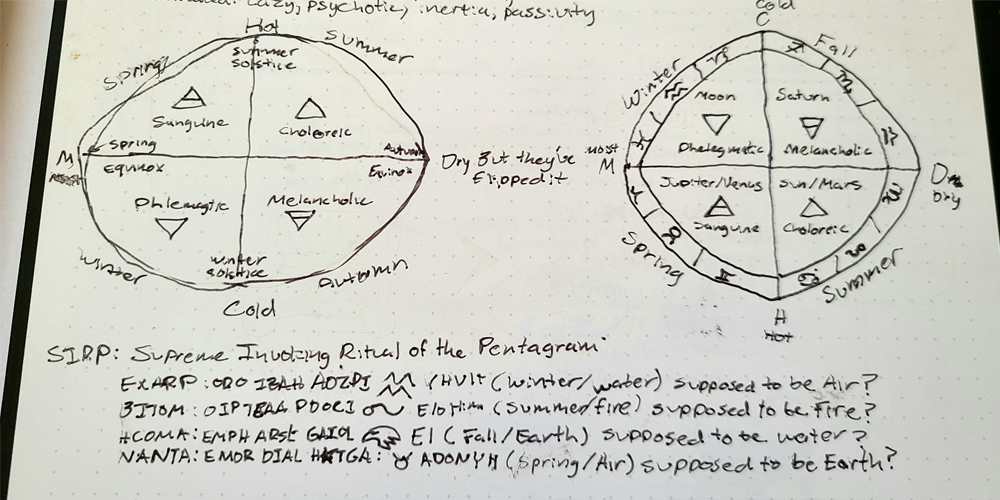 Lazy, psychotic, inertia, passivity
Hot
summer
solstice
Spring
Summer
Sanguine
Choloreic
M
Spring
Equinox
Autumn
Equinox
Dry But they've
flopped it
Phlemagic
Melancholic
winter
solstice
Winter
Autumn
Cold
Cold
C
Winter
Fall
Moon
Saturn
Phelegmatic
Melancholic
moist
M
Dry
Jupiter/Venus
Sun/Mars
Sanguine
Choloreic
Spring
Summer
H
Hot
SIRP: Supreme Invoking Ritual of the Pentagram
EXARP: ORO IBAH AOZPI ♒ YHVH (winter/water) supposed to be Air?
BITOM: OIP TEAA PDOCI ♌ Elohim (Summer/fire) supposed to be fire?
HCOMA: EMPH ARSL GAIOL El (Fall/Earth) supposed to be water?
NANTA: EMOR DIAL HKTGA: ♉ ADONYH (Spring/Air) supposed to be Earth?